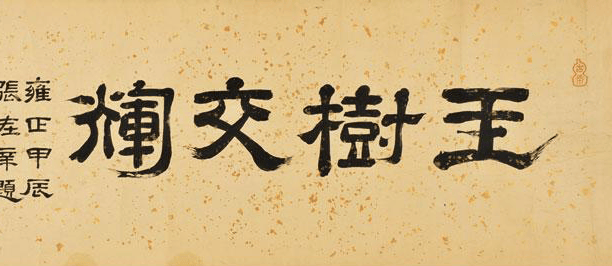 玉樹交輝
雍正甲辰
張在辛題